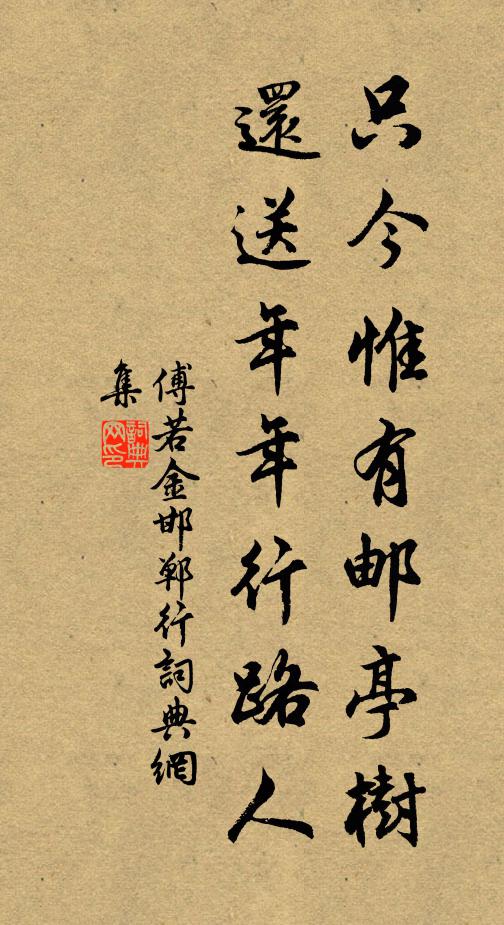 只今惟有邮亭樹
還送年年行路人
傅若金邯鄲行詞典網
集
詞典
网印